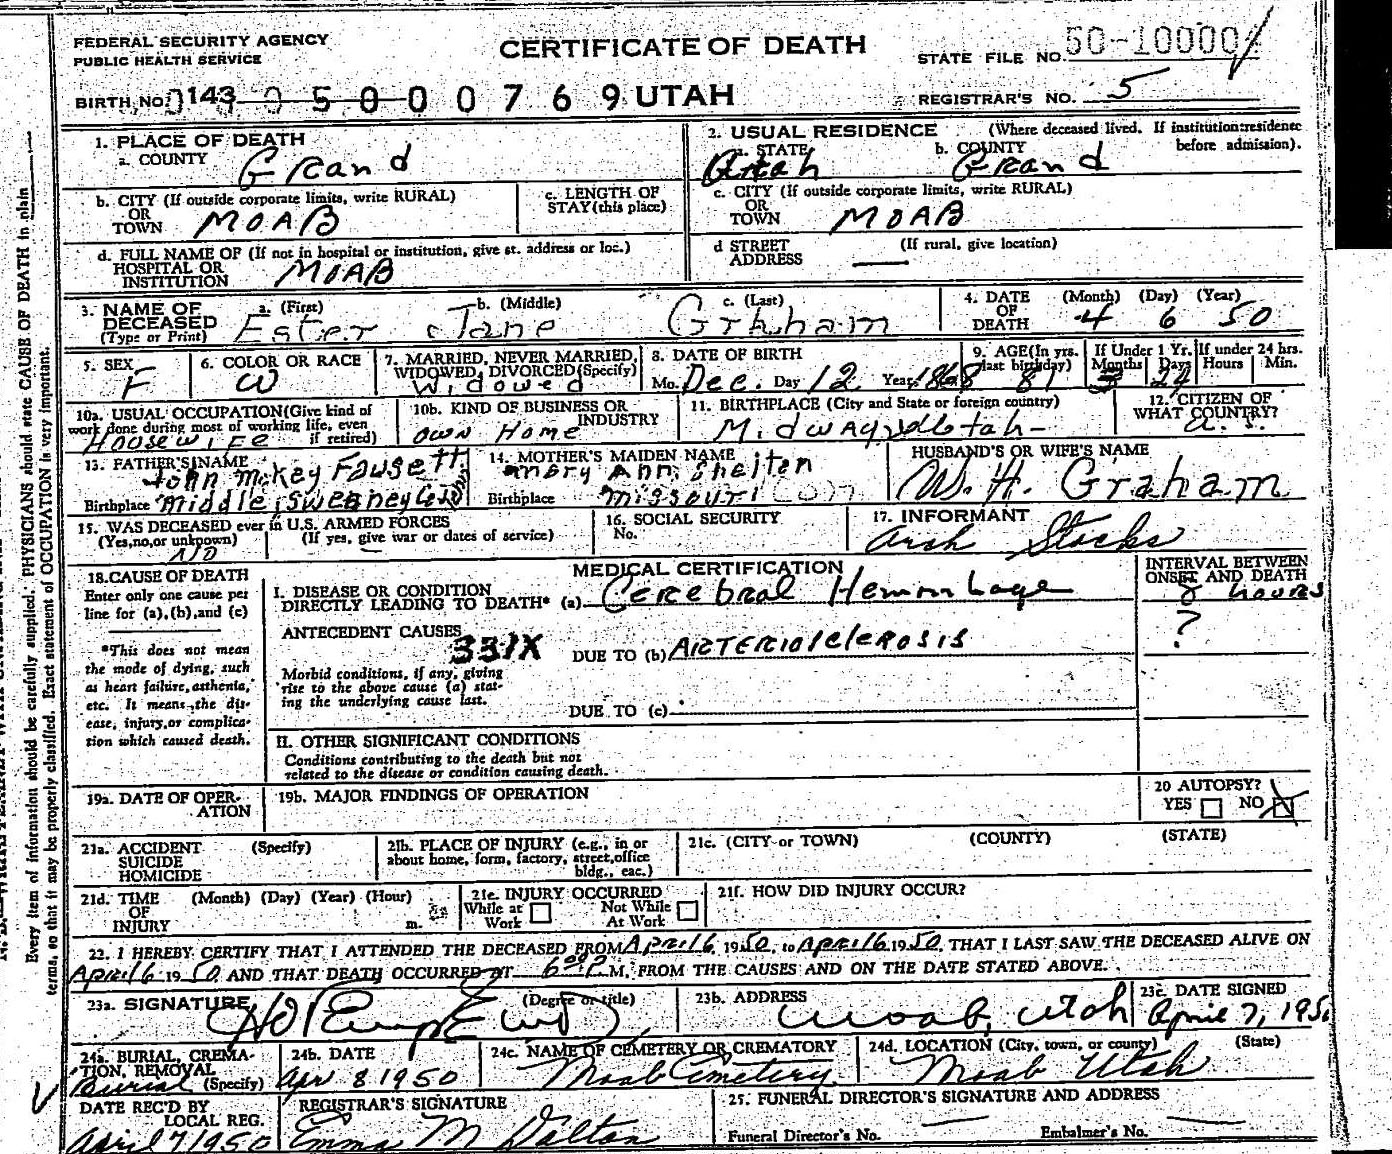 FEDERAL SECURITY AGENCY
PUBLIC HEALTH SERVICE
CERTIFICATE OF DEATH
STATE FILE NO.
BIRTH NO. 143 0 5 0 0 0 7 6 9 UTAH
REGISTRAR'S NO. 5
1. PLACE OF DEATH
a. COUNTY Grand
2. USUAL RESIDENCE (Where deceased lived. If institution: residence before admission).
a. STATE Utah b. COUNTY Grand
b. CITY (If outside corporate limits, write RURAL) OR TOWN MOAB
c. LENGTH OF STAY (this place)
c. CITY (If outside corporate limits, write RURAL) OR TOWN MOAB
d. FULL NAME OF (If not in hospital or institution, give st. address or loc.) HOSPITAL OR INSTITUTION MOAB
d STREET ADDRESS (If rural, give location)
3. NAME OF DECEASED (Type or Print)
a. (First) Ester b. (Middle) Jane c. (Last) Grhham
4. DATE OF DEATH (Month) (Day) (Year) 4 6 50
5. SEX F
6. COLOR OR RACE W
7. MARRIED, NEVER MARRIED, WIDOWED, DIVORCED (Specify) Widowed
8. DATE OF BIRTH Mo. Dec. Day 12 Year 1868
9. AGE (In yrs. last birthday) 81
If Under 1 Yr. Months 3 Days 24
If under 24 hrs. Hours Min.
10a. USUAL OCCUPATION (Give kind of work done during most of working life, even if retired) Housewife
10b. KIND OF BUSINESS OR INDUSTRY own Home
11. BIRTHPLACE (City and State or foreign country) Midway, Utah
12. CITIZEN OF WHAT COUNTRY? U. S.
13. FATHER'S NAME John McKey Fausett
Birthplace Middle,
14. MOTHER'S MAIDEN NAME Ann Shelton
Birthplace Missouri
HUSBAND'S OR WIFE'S NAME W. H. Graham
15. WAS DECEASED ever in U.S. ARMED FORCES
(Yes, no, or unknown) (If yes, give war or dates of service)
NO
16. SOCIAL SECURITY No.
17. INFORMANT Arah Stocks
MEDICAL CERTIFICATION
INTERVAL BETWEEN ONSET AND DEATH
18. CAUSE OF DEATH
Enter only one cause per line for (a), (b), and (c)
*This does not mean the mode of dying, such as heart failure, asthenia, etc. It means the disease, injury, or complication which caused death.
I. DISEASE OR CONDITION DIRECTLY LEADING TO DEATH* (a) Cerebral Hemorrhage hours
ANTECEDENT CAUSES
331X
DUE TO (b) ARTERIOSCLEROSIS ?
Morbid conditions, if any, giving rise to the above cause (a) stating the underlying cause last.
DUE TO (c)
II. OTHER SIGNIFICANT CONDITIONS
Conditions contributing to the death but not related to the disease or condition causing death.
19a. DATE OF OPERATION
19b. MAJOR FINDINGS OF OPERATION
20 AUTOPSY?
YES NO X
21a. ACCIDENT SUICIDE HOMICIDE (Specify)
21b. PLACE OF INJURY (e.g., in or about home, form, factory, street, office bldg., eac.)
21c. (CITY or TOWN) (COUNTY) (STATE)
21d. TIME OF INJURY (Month) (Day) (Year) (Hour) m.
21e. INJURY OCCURRED
While at Work Not While At Work
21f. HOW DID INJURY OCCUR?
22. I HEREBY CERTIFY THAT I ATTENDED THE DECEASED FROM April 6, 1950, to April 6 1950, THAT I LAST SAW THE DECEASED ALIVE ON
April 6 1950 AND THAT DEATH OCCURRED AT 6 P M, FROM THE CAUSES AND ON THE DATE STATED ABOVE.
23a. SIGNATURE (Degree or title)
23b. ADDRESS Moab, Utah
23c. DATE SIGNED April 7, 1950
24a. BURIAL, CREMATION, REMOVAL (Specify) Burial
24b. DATE Apr 8 1950
24c. NAME OF CEMETERY OR CREMATORY Moab Cemetery
24d. LOCATION (City, town, or county) (State) Moab Utah
DATE REC'D BY LOCAL REG. April 7 1950
REGISTRAR'S SIGNATURE Emma M Dalton
25. FUNERAL DIRECTOR'S SIGNATURE AND ADDRESS
Funeral Director's No. Embalmer's No.
Every item of information should be carefully supplied. PHYSICIANS should state CAUSE OF DEATH in plain
terms, so that it may be properly classified. Exact statement of OCCUPATION is very important.